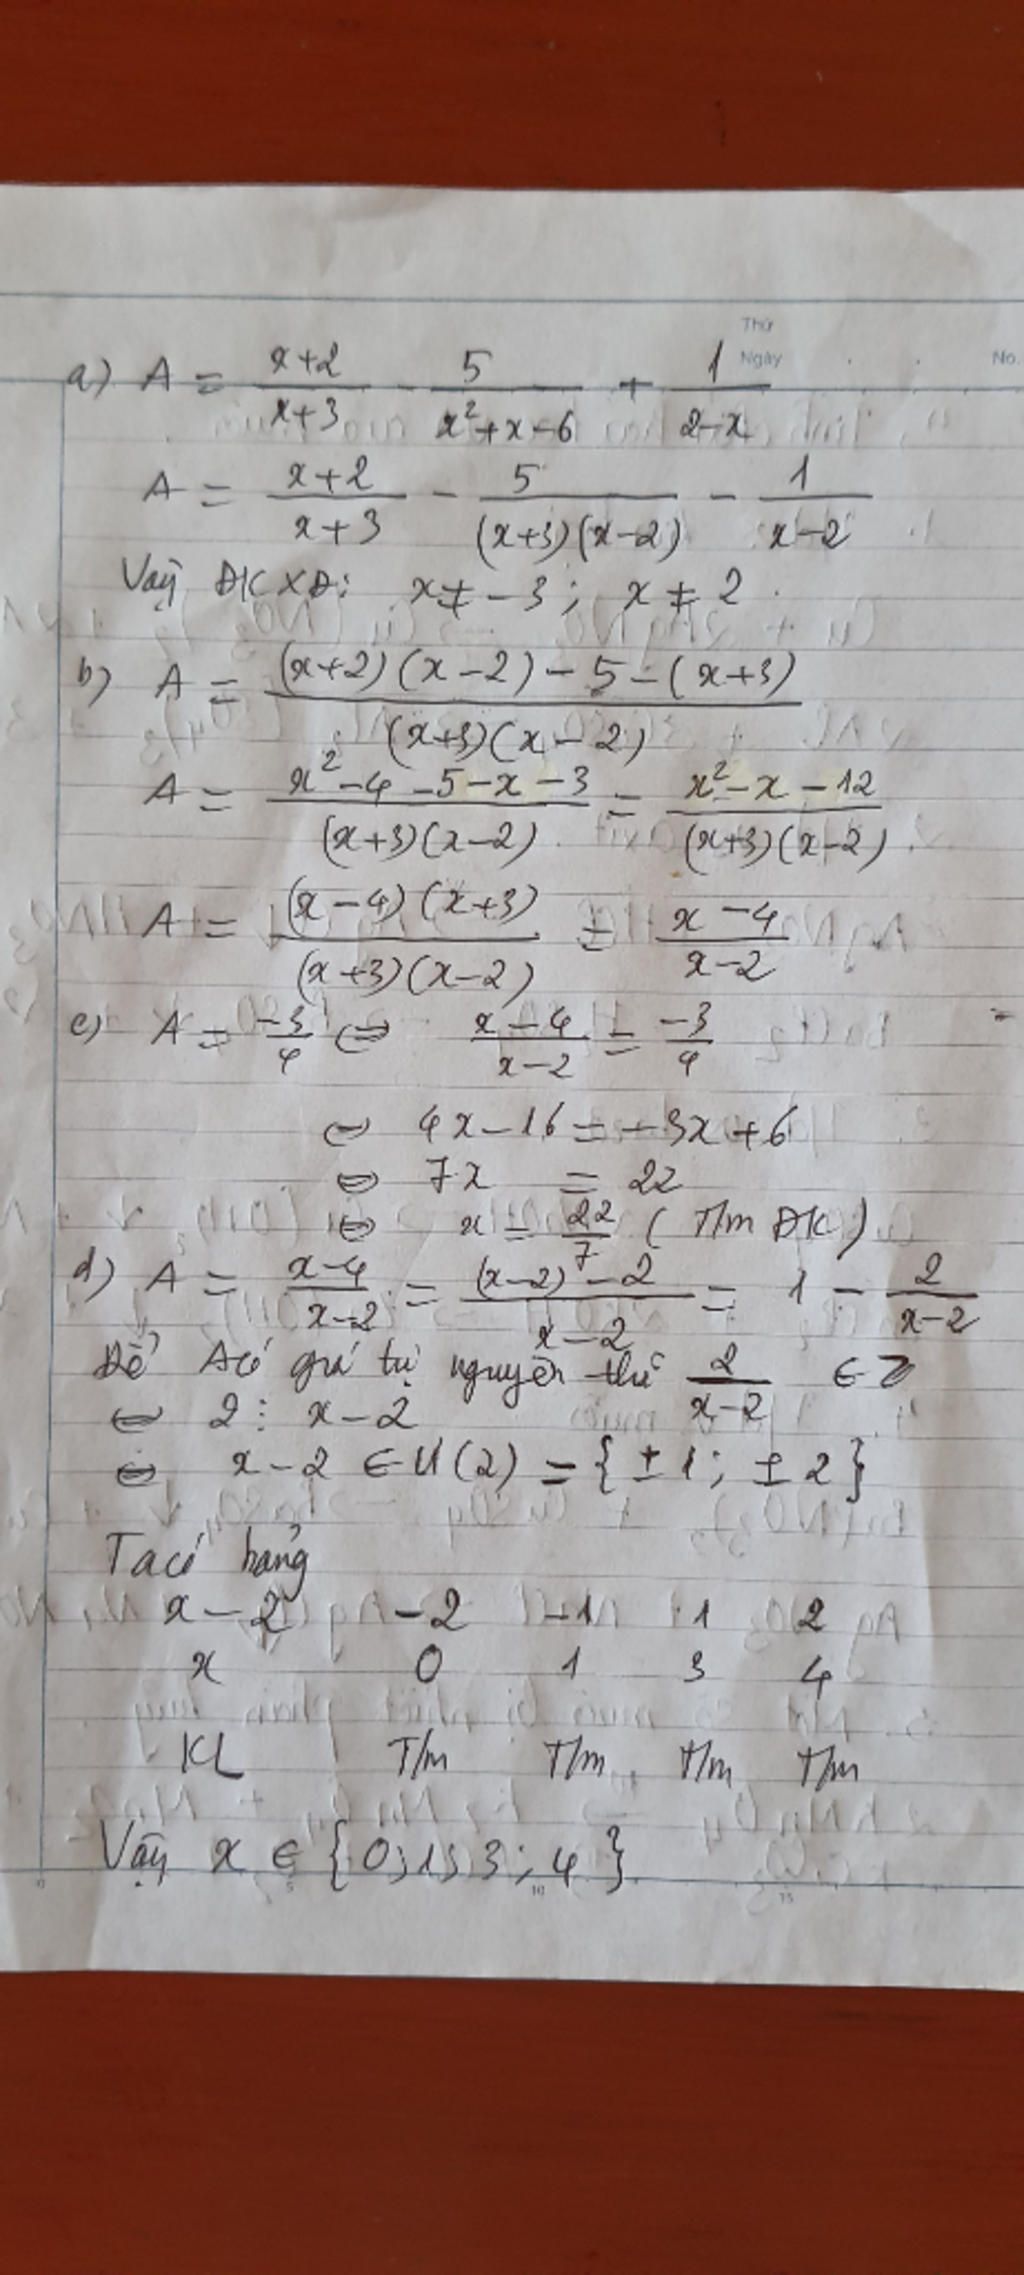 Thứ
Ngày
No.
a) A = x+2/x+3 - 5/x²+x-6 + 1/2-x
A = x+2/x+3 - 5/(x+3)(x-2) - 1/x-2
Vậy ĐKXĐ: x ≠ -3; x ≠ 2.
b) A = (x+2)(x-2)-5-(x+3)/(x+3)(x-2)
A = x²-4-5-x-3/(x+3)(x-2) = x²-x-12/(x+3)(x-2)
A = (x-4)(x+3)/(x+3)(x-2) = x-4/x-2
c) A = -3/4 ⇔ x-4/x-2 = -3/4
⇔ 4x-16 = -3x+6
⇔ 7x = 22
⇔ x = 22/7 (T/m ĐK)
d) A = x-4/x-2 = (x-2)-2/x-2 = 1 - 2/x-2
Để A có giá trị nguyên thì 2/x-2 ∈ Z
⇔ 2 ⋮ x-2
⇔ x-2 ∈ Ư(2) = {±1; ±2}
Ta có bảng
x-2 -2 -1 1 2
x 0 1 3 4
KL T/m T/m T/m T/m
Vậy x ∈ {0;1;3;4}
5 10 15